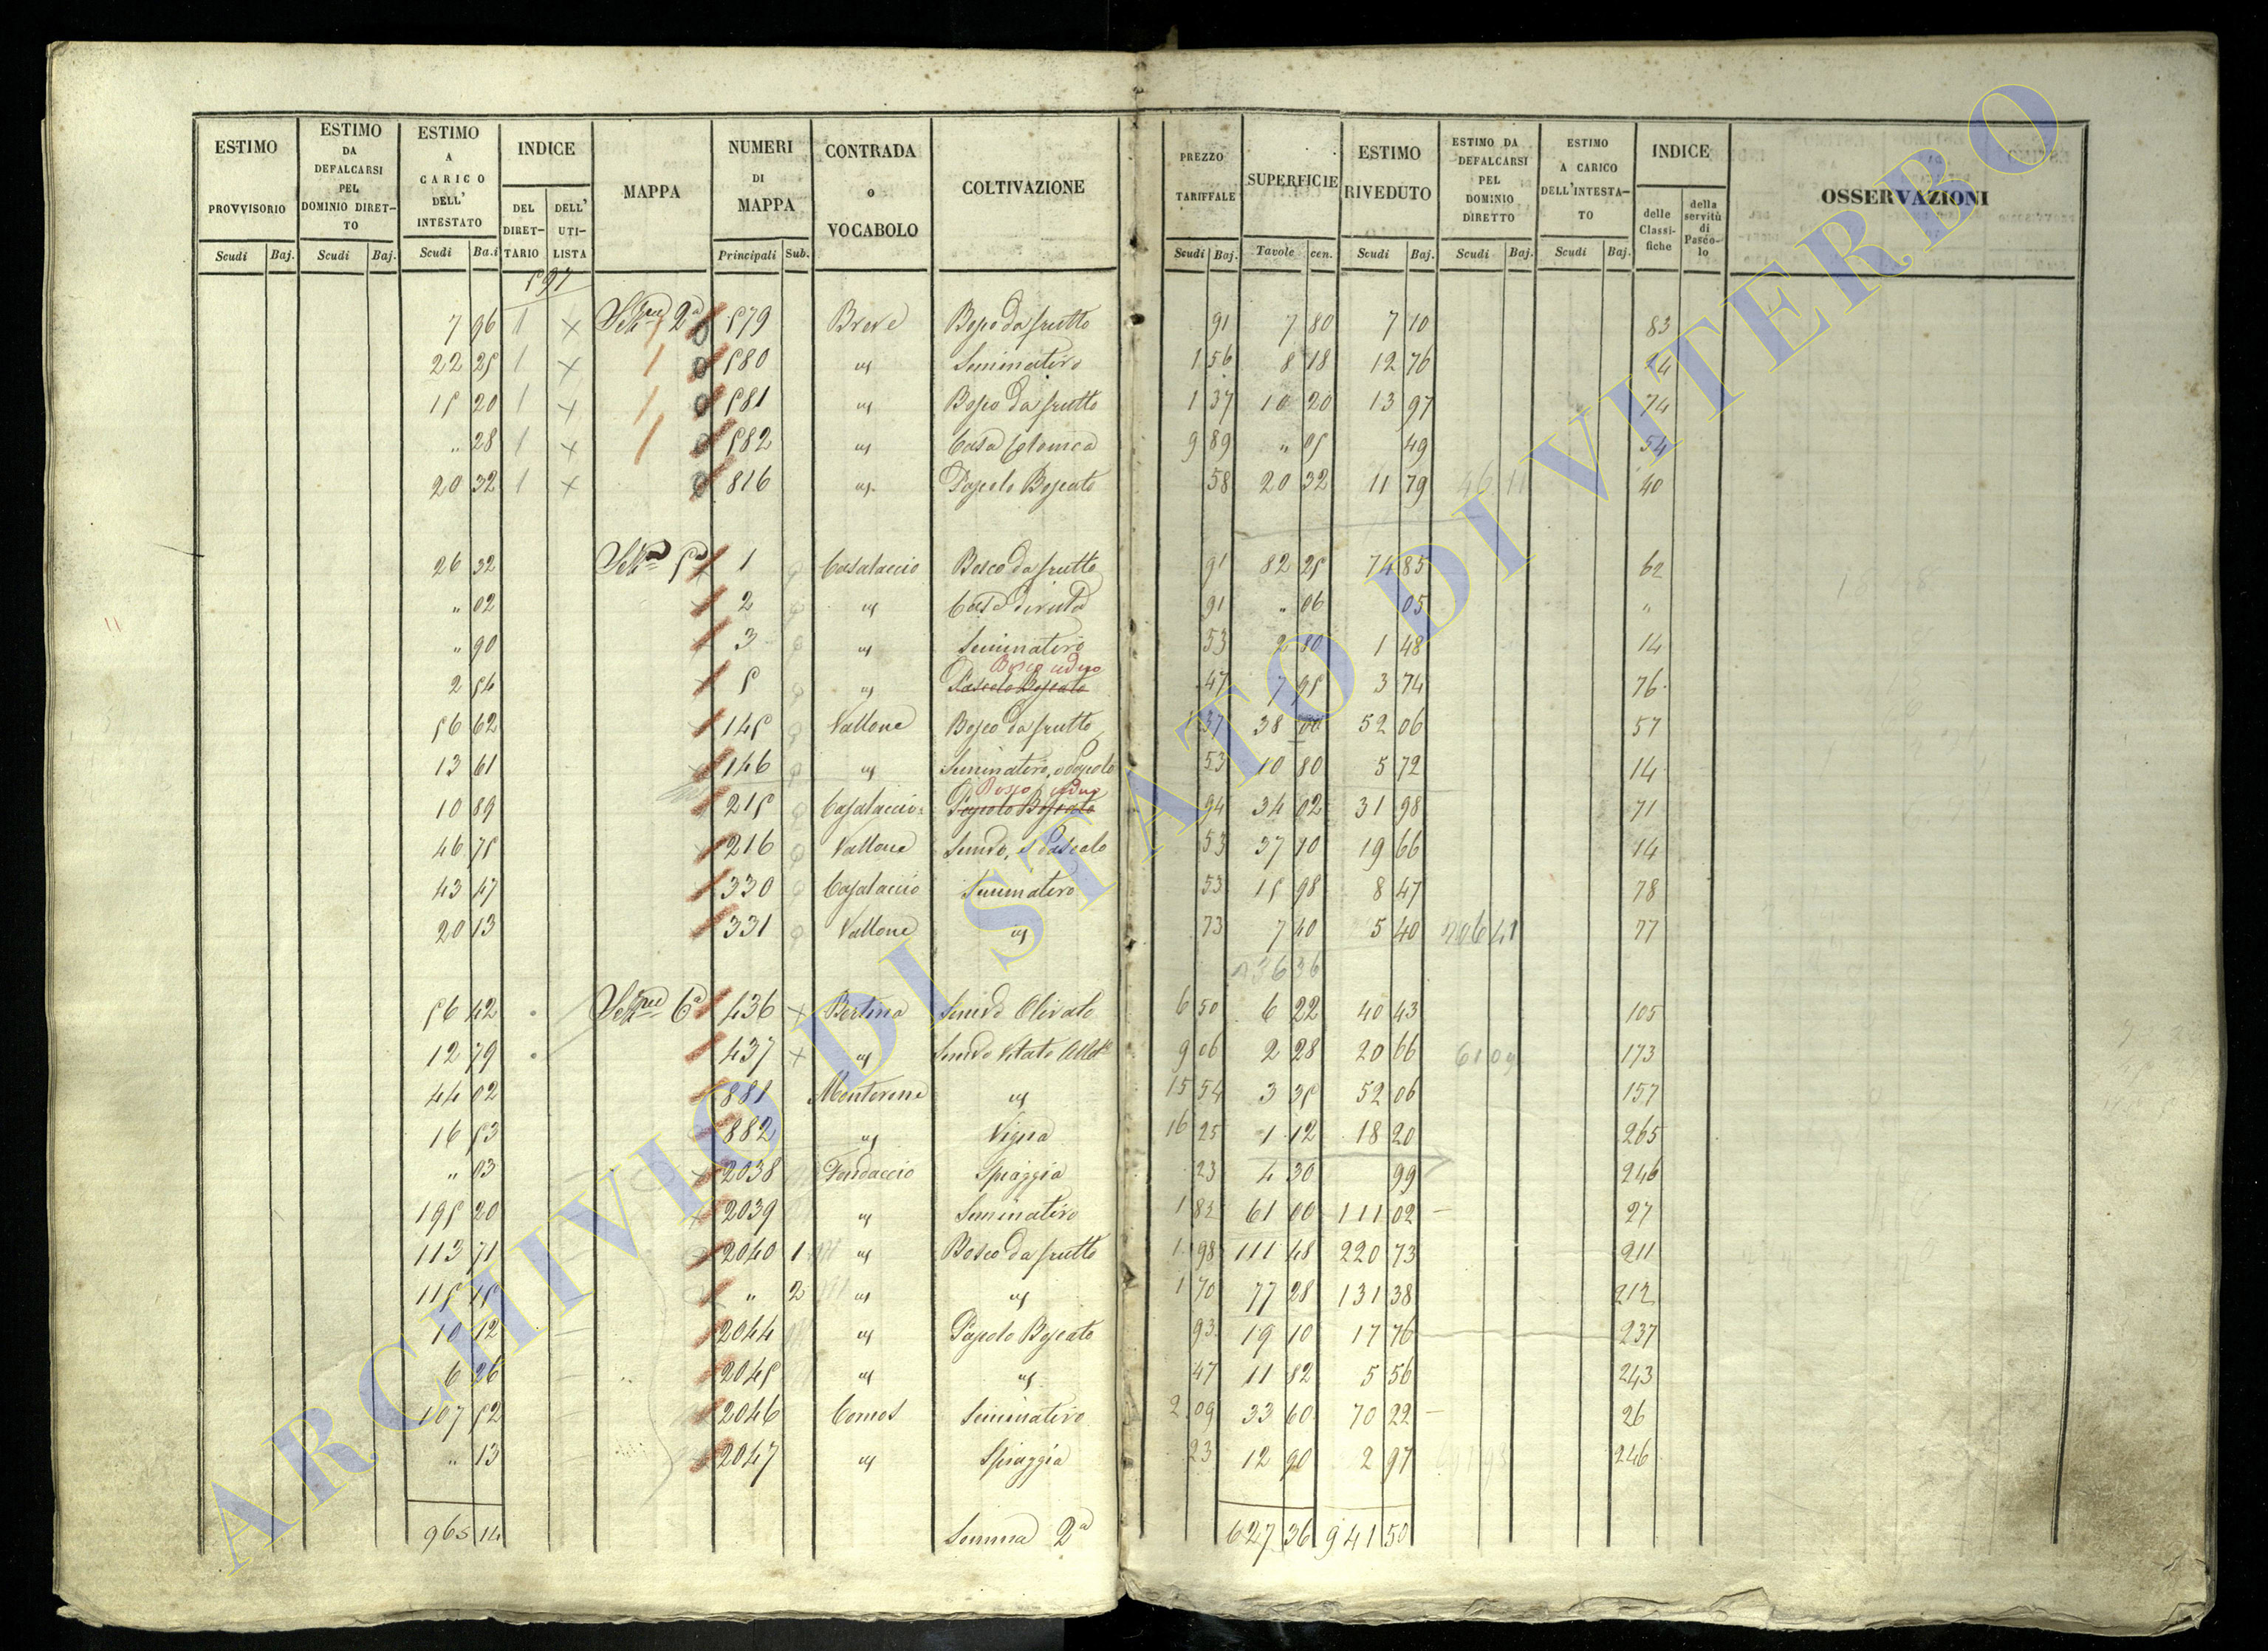 ESTIMO PROVVISORIO Scudi Baj.
ESTIMO DA DEFALCARSI PEL DOMINIO DIRETTO Scudi Baj.
ESTIMO A CARICO DELL' INTESTATO Scudi Ba.i
INDICE DEL DIRETTARIO DELL' UTILISTA
MAPPA
NUMERI DI MAPPA Principali Sub.
CONTRADA o VOCABOLO
COLTIVAZIONE
PREZZO TARIFFALE Scudi Baj.
SUPERFICIE Tavole cen.
ESTIMO RIVEDUTO Scudi Baj.
ESTIMO DA DEFALCARSI PEL DOMINIO DIRETTO Scudi Baj.
ESTIMO A CARICO DELL'INTESTATO Scudi Baj.
INDICE delle Classifiche della servitù di Pascolo
OSSERVAZIONI
597
7 96 1 × 2ª 579 Breve Bosco da frutto 91 7 80 7 10 83
22 25 1 × 580 " Seminativo 1 56 8 18 12 76 74
15 20 1 × 581 " Bosco da frutto 1 37 10 20 13 97 74
" 28 1 × 582 " Casa Colonica 9 89 " 05 49 54
20 32 1 × 816 " Pascolo Boscato 58 20 32 11 79 46 11 40
26 32 5ª 1 Casalaccio Bosco da frutto 91 82 25 74 85 62
" 02 2 " Casa diruta 91 " 06 05 "
" 90 3 " Seminativo 53 2 80 1 48 14
Bosco ceduo
2 54 5 " Pascolo Boscato 47 7 95 3 74 76
56 62 145 Vallone Bosco da frutto 1 37 38 00 52 06 57
13 61 146 " Seminativo, o Pascolo 53 10 80 5 72 14
Bosco ceduo
10 89 215 Casalaccio Pascolo Boscato 94 34 02 31 98 71
46 75 216 Vallone Semivo, e Pascolo 53 37 10 19 66 14
43 47 330 Casalaccio Seminativo 53 15 98 8 47 78
20 13 331 Vallone " 73 7 40 5 40 77
36 36
56 42 6ª 436 × Bertina Semivo Olivato 6 50 6 22 40 43 105
12 79 437 × " Semivo Vitato 9 06 2 28 20 66 61 09 173
44 02 881 Monterone " 15 54 3 35 52 06 157
16 53 882 " Vigna 16 25 1 12 18 20 265
" 03 2038 Fondaccio Spiaggia 23 4 30 99 246
195 20 2039 " Seminativo 1 82 61 00 111 02 27
113 71 2040 1 " Bosco da frutto 1 98 111 48 220 73 211
115 15 " 2 " " 1 70 77 28 131 38 212
10 12 2044 " Pascolo Boscato 93 19 10 17 76 237
6 26 2045 " " 47 11 82 5 56 243
107 52 2046 Comos Seminativo 2 09 33 60 70 22 26
" 13 2047 " Spiaggia 23 12 90 2 97 246
965 14 Somma 2ª 627 36 941 50
ARCHIVIO DI STATO DI VITERBO